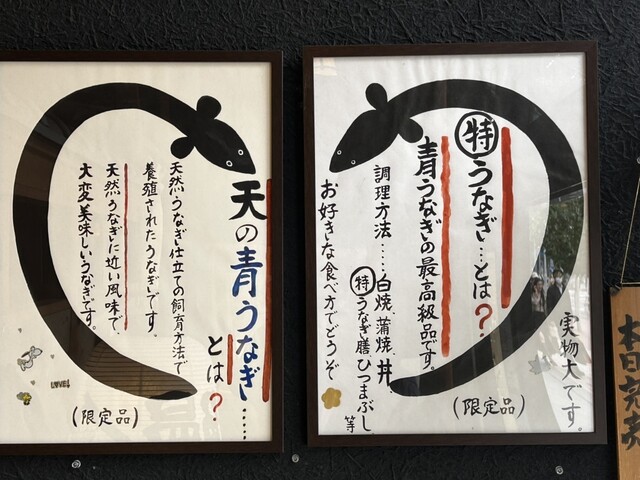 本日完
㊕うなぎ…とは?
青うなぎの最高級品です。
調理方法‥‥白焼、蒲焼、丼、
㊕うなぎ膳、ひつまぶし等
お好きな食べ方でどうぞ
実物大です。
(限定品)
天の青うなぎ……
とは?
天然うなぎ仕立ての飼育方法で
養殖されたうなぎです。
天然うなぎに近い風味で、
大変美味しいうなぎです。
LOVE!
(限定品)